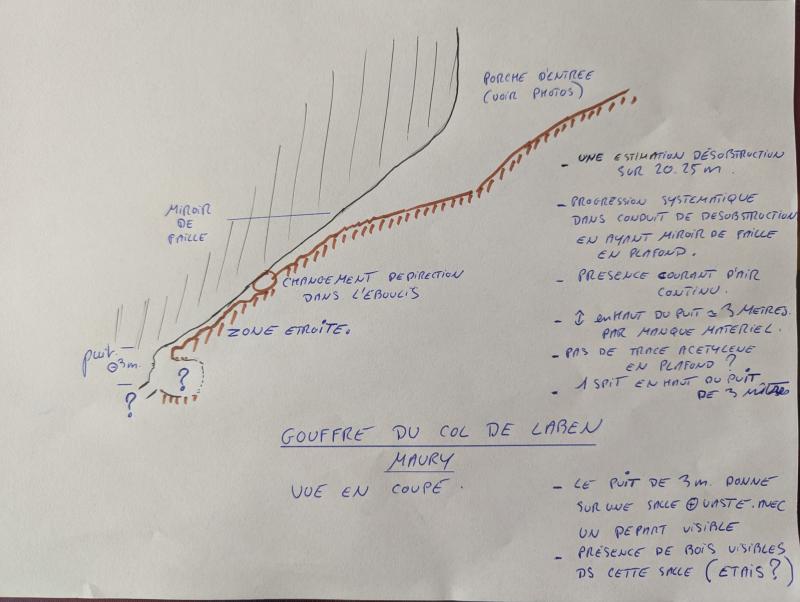 PORCHE D'ENTREE
(VOIR PHOTOS)
- UNE ESTIMATION DÉSOBSTRUCTION
SUR 20.25 m.
MIROIR
DE
FAILLE
- PROGRESSION SYSTEMATIQUE
DANS CONDUIT DE DESOBSTRUCTION
EN AYANT MIROIR DE FAILLE
EN PLAFOND.
CHANGEMENT DE DIRECTION
DANS L'ÉBOULIS
- PRESENCE COURANT D'AIR
CONTINU.
ZONE ETROITE.
- ↕ en HAUT DU PUIT ≃ 3 METRES.
PAR MANQUE MATERIEL.
puit.
⊖3m.
?
?
- PAS DE TRACE ACETYLENE
EN PLAFOND ?
- 1 SPIT EN HAUT DU PUIT
DE 3 MÈTRES
GOUFFRE DU COL DE LABEN
MAURY
VUE EN COUPE.
- LE PUIT DE 3 m. DONNE
SUR UNE SALLE ⊕ VASTE. AVEC
UN DEPART VISIBLE
- PRÉSENCE DE BOIS VISIBLES
DS CETTE SALLE (ETAIS?)